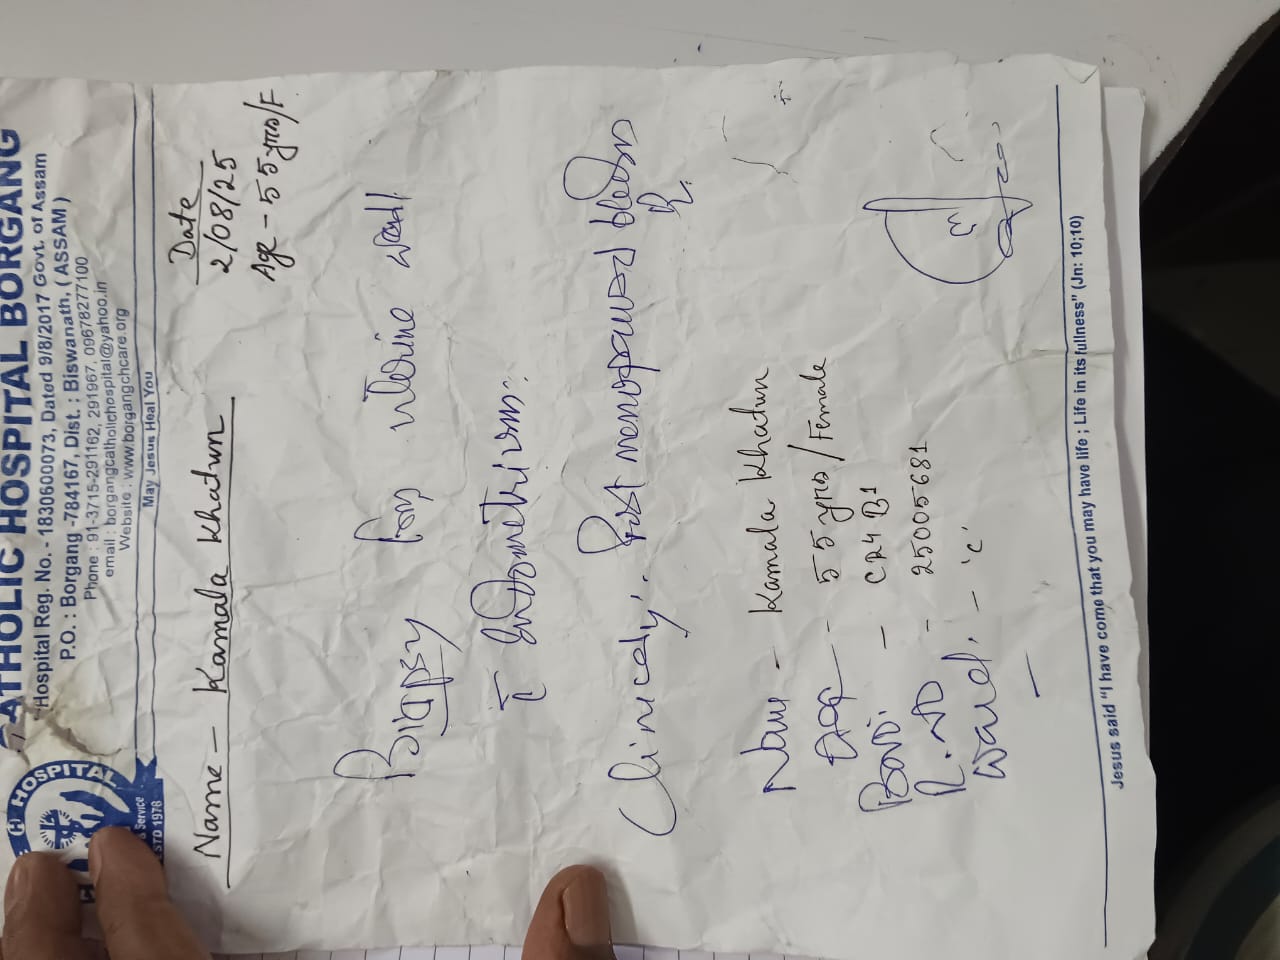 CATHOLIC HOSPITAL BORGANG
Hospital Reg. No. - 1830600073, Dated 9/8/2017 Govt. of Assam
P.O. : Borgang -784167, Dist. : Biswanath, ( ASSAM )
Phone : 91-3715-291162, 291967, 09678277100
email : borgangcatholichospital@yahoo.in
Website : www.borgangchcare.org
May Jesus Heal You
HOSPITAL
Service
ESTD 1978
Date
2/08/25
Name - Kamala Khatun
Age - 55 yrs/F
Biopsy from uterine wall
c̄ Endometrium.
Clinically. Post menopausal bleeding
Name - Kamala Khatun
Age - 55 yrs / Female
Bed. - CR4 B1
R. No - 25005681
Ward. - 'C'
Jesus said "I have come that you may have life ; Life in its fullness" (Jn: 10;10)